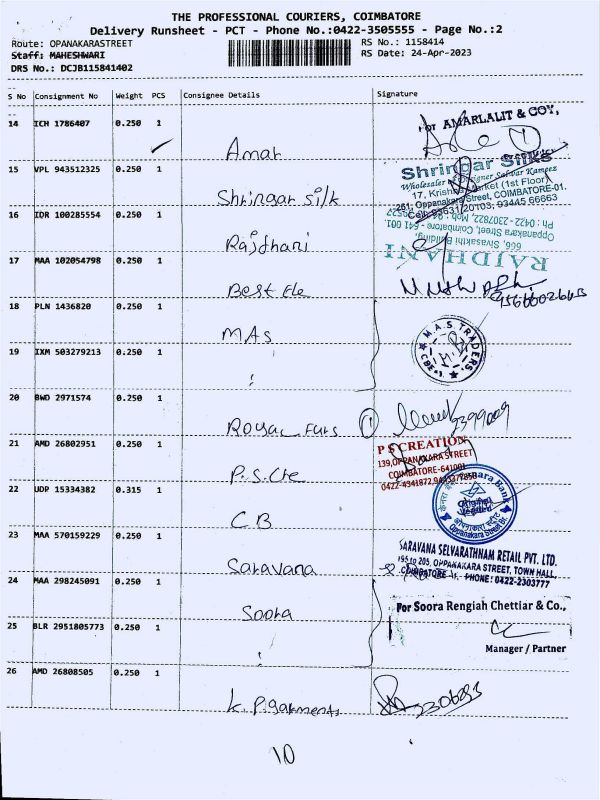 THE PROFESSIONAL COURIERS, COIMBATORE
Delivery Runsheet - PCT - Phone No.:0422-3505555 - Page No.:2
Route: OPANAKARASTREET
RS No.: 1158414
Staff: MAHESHWARI
RS Date: 24-Apr-2023
DRS No.: DCJB115841402
S No Consignment No Weight PCS Consignee Details Signature
14 ICH 1786407 0.250 1
For AMARLALIT & COY,
Amar
15 VPL 943512325 0.250 1
Shringar Silks
Wholezaler & Designer Salwar Kameez
17, Krishna Market (1st Floor)
261, Oppanakara Street, COIMBATORE-01.
Cell: 93631 20103, 93445 66663
Shringar Silk
16 IDR 100285554 0.250 1
RAJDHANI
606, Sivasakthi Building,
Oppanakara Street, Coimbatore - 641 001
Rajdhani
17 MAA 102054798 0.250 1
Best Ele
18 PLN 1436820 0.250 1
MAS
M.A.S TRADERS
CBE-1
19 IXM 503279213 0.250 1
20 BWD 2971574 0.250 1
Royal Furs 1
2399009
21 AMD 26802951 0.250 1
P S CREATION
139, OPPANAKARA STREET
COIMBATORE-641001
P.S.Cte
22 UDP 15334382 0.315 1
C.B
23 MAA 570159229 0.250 1
SARAVANA SELVARATHNAM RETAIL PVT. LTD.
195 to 205, OPPANAKARA STREET, TOWN HALL,
COIMBATORE - 1. PHONE: 0422-2303777
Saravana
24 MAA 298245091 0.250 1
For Soora Rengiah Chettiar & Co.,
Soora
25 BLR 2951805773 0.250 1
Manager / Partner
26 AMD 26808505 0.250 1
K. P garments
10